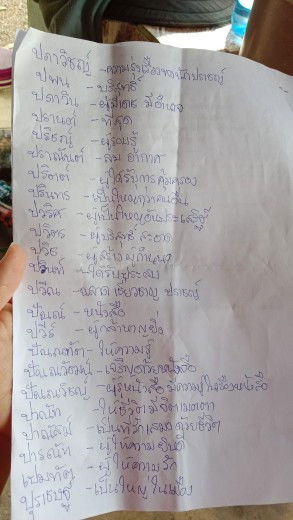 ปภาวิชญ์ - ความรุ่งเรืองของนักปราชญ์
ปพน - บริสุทธิ์
ปภาวิน - ผู้มีเดช มีอำนาจ
ปรานต์ - ที่สุด
ปริชญ์ - ผู้รอบรู้
ปราณันต์ - ลม อากาศ
ปริตต์ - ผู้ได้รับการคุ้มครอง
ปรินทร - เป็นใหญ่กว่าคนอื่น
ปวริศ - ผู้เป็นใหญ่อันประเสริฐ
ปวิตร - ผู้บริสุทธิ์ สะอาด
ปวิธ
ปวินท์ - ได้รับ ประสบ
ปวีณ - ฉลาด เชี่ยวชาญ ปราชญ์
ปัณณ์ - หนังสือ
ปวีร์ - ผู้กล้าหาญยิ่ง
ปัณณทัต - ให้ความรู้
ปัณณวัฒน์ - เจริญด้วยหนังสือ
ปัณณวิชญ์ - ผู้รู้หนังสือ มีความรู้ในเรื่องหนังสือ
ปาณัท - ให้ชีวิต มีจิตเมตตา
ปาณัสม์ - เป็นที่รักเสมอด้วยชีวิต
ปารณัท - ผู้ให้ความยินดี
เปมทัต - ผู้ให้ความรัก
ปุรเชษฐ์ - เป็นใหญ่ในเมือง